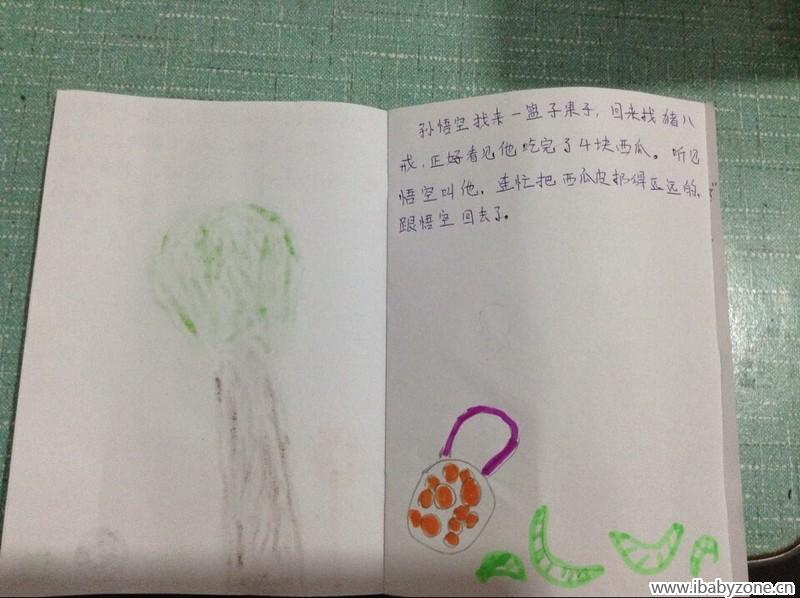 孙悟空找来一篮子果子,回来找猪八
戒,正好看见他吃完了4块西瓜。听见
悟空叫他,连忙把西瓜皮扔得远远的,
跟悟空回去了。
www.ibabyzone.cn